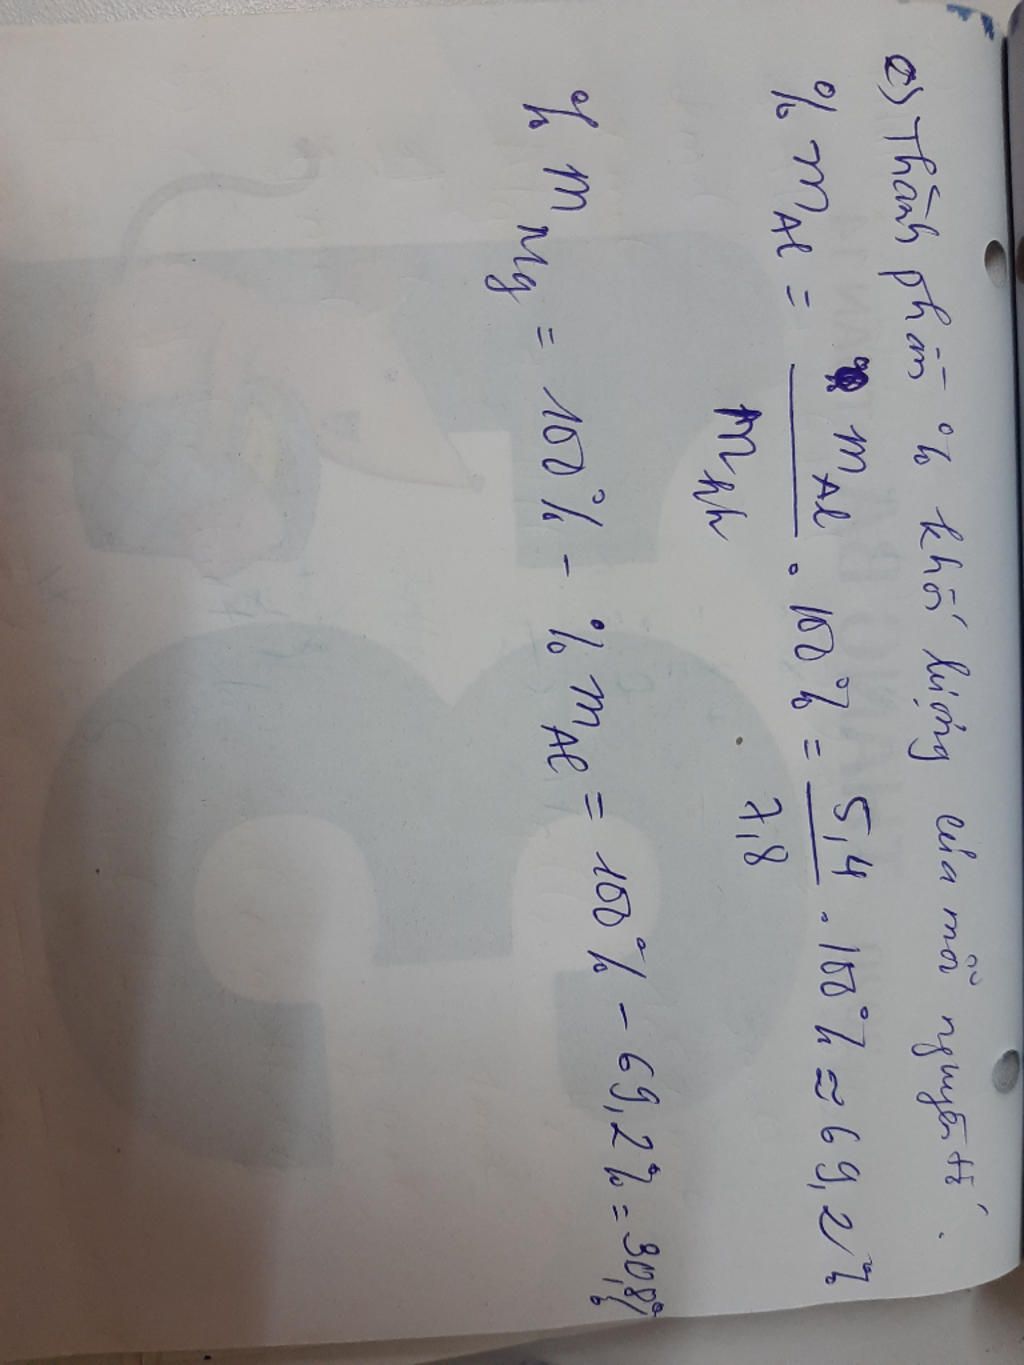 c) Thành phần % khối lượng của mỗi nguyên tố.
% mAl = mAl / mhh . 100% = 5,4 / 7,8 . 100% ≈ 69,2%
% mMg = 100% - % mAl = 100% - 69,2% = 30,8%